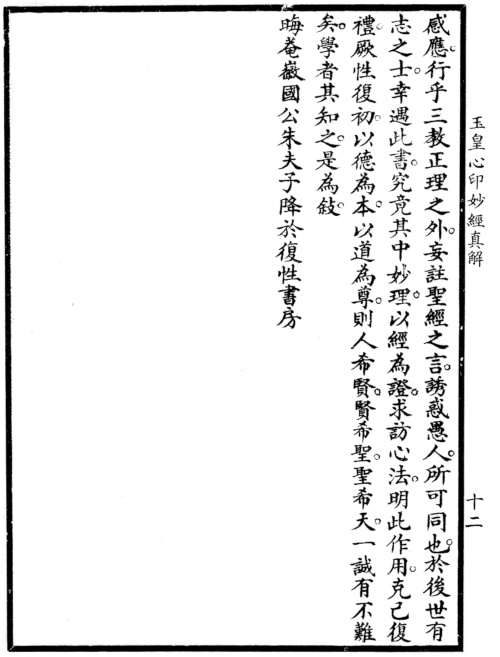 玉皇心印妙經真解
十二
感應。行乎三教正理之外。妄註聖經之言。誘惑愚人。所可同也。於後世有
志之士。幸遇此書。究竟其中妙理。以經為證。求訪心法。明此作用。克己復
禮。厥性復初。以德為本。以道為尊。則人希賢。賢希聖。聖希天。一誠有不難
矣。學者其知之。是為敍。
晦菴嶽國公朱夫子降於復性書房